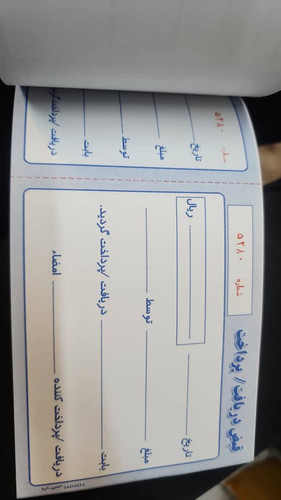 شماره ۵۲۸۰
تاریخ
مبلغ
توسط
بابت
دریافت /پرداخت
قبض دریافت/ پرداخت
شماره ۵۲۸۰
تاریخ
ریال
مبلغ
توسط
بابت
دریافت /پرداخت گردید.
دریافت /پرداخت کننده
امضاء